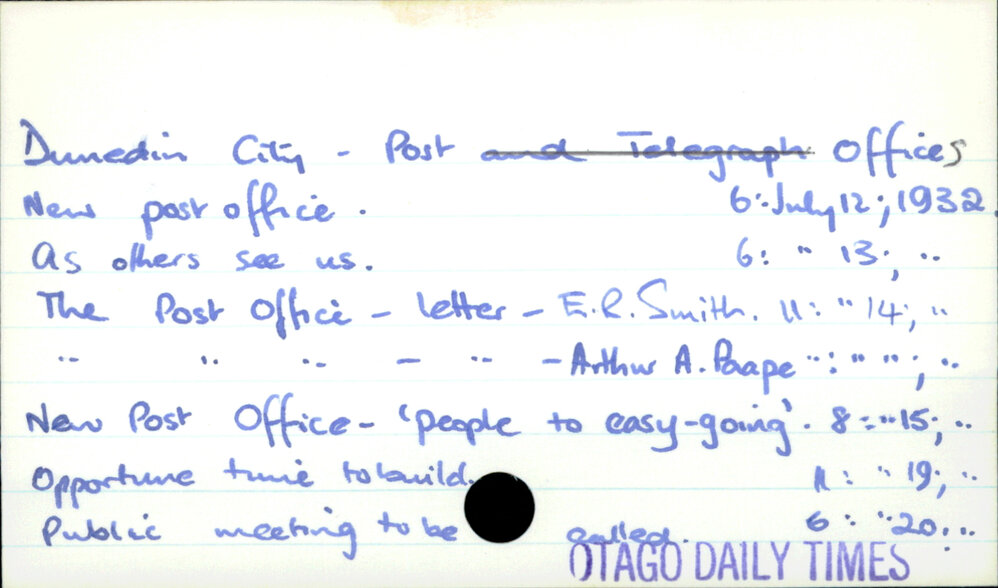 Dunedin City - Post and Telegraph Offices
New post office. 6: July 12; 1932.
As others see us. 6: " 13; "
The Post Office - letter - E.R. Smith. 11: " 14; "
" " " - " - Arthur A. Paape ": " "; "
New Post Office - 'people to easy-going'. 8: " 15; "
Opportune time to build. 11: " 19; "
Public meeting to be called. 6: " 20; "
OTAGO DAILY TIMES